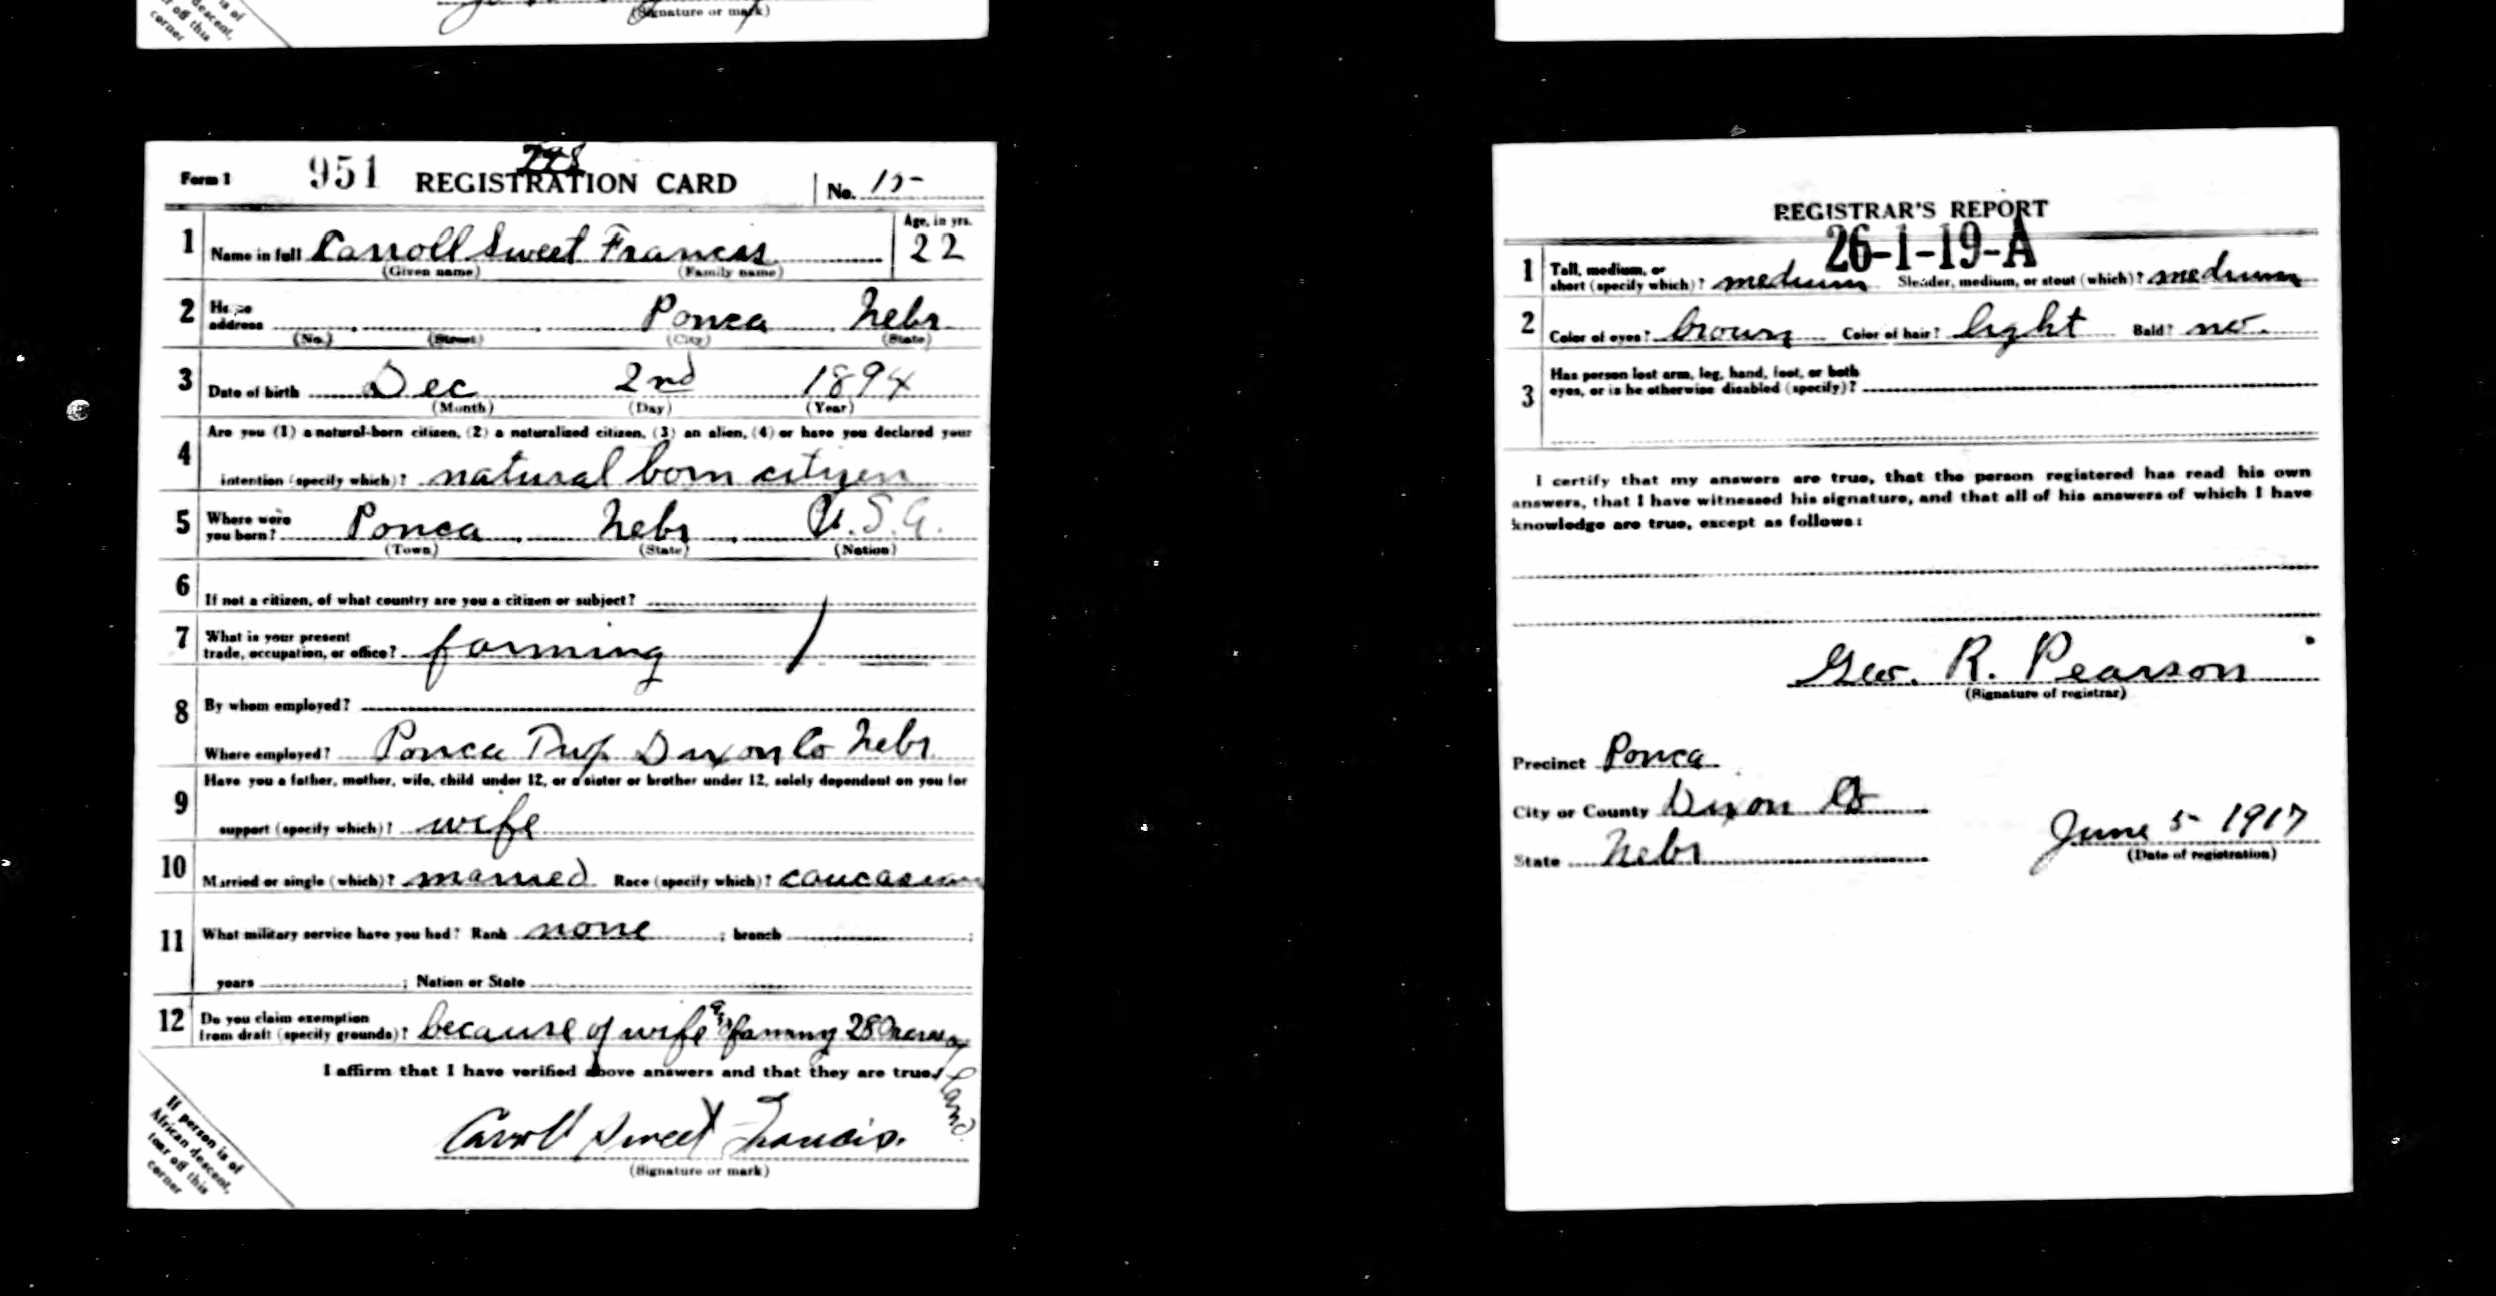 (Signature or mark)
is of
descent,
off this
corner
Form 1 951 REGISTRATION CARD No. 15
1 Name in full Carroll Sweet Francis Age, in yrs. 22
(Given name) (Family name)
2 Home address Ponca Nebr
(No.) (Street) (City) (State)
3 Date of birth Dec 2nd 1894
(Month) (Day) (Year)
4 Are you (1) a natural-born citizen, (2) a naturalized citizen, (3) an alien, (4) or have you declared your
intention (specify which)? natural born citizen
5 Where were
you born? Ponca Nebr U.S.A.
(Town) (State) (Nation)
6 If not a citizen, of what country are you a citizen or subject?
7 What is your present
trade, occupation, or office? farming
8 By whom employed?
Where employed? Ponca Twp Dixon Co Nebr
9 Have you a father, mother, wife, child under 12, or a sister or brother under 12, solely dependent on you for
support (specify which)? wife
10 Married or single (which)? married Race (specify which)? caucasian
11 What military service have you had? Rank none ; branch ;
years ; Nation or State
12 Do you claim exemption
from draft (specify grounds)? because of wife and farming 280 acres of land.
I affirm that I have verified above answers and that they are true.
Carroll Sweet Francis.
(Signature or mark)
If person is of
African descent,
tear off this
corner
REGISTRAR'S REPORT
26-1-19-A
1 Tall, medium, or
short (specify which)? medium Slender, medium, or stout (which)? medium
2 Color of eyes? brown Color of hair? light Bald? no.
3 Has person lost arm, leg, hand, foot, or both
eyes, or is he otherwise disabled (specify)?
I certify that my answers are true, that the person registered has read his own
answers, that I have witnessed his signature, and that all of his answers of which I have
knowledge are true, except as follows:
Geo. R. Pearson
(Signature of registrar)
Precinct Ponca
City or County Dixon Co
State Nebr
June 5 1917
(Date of registration)